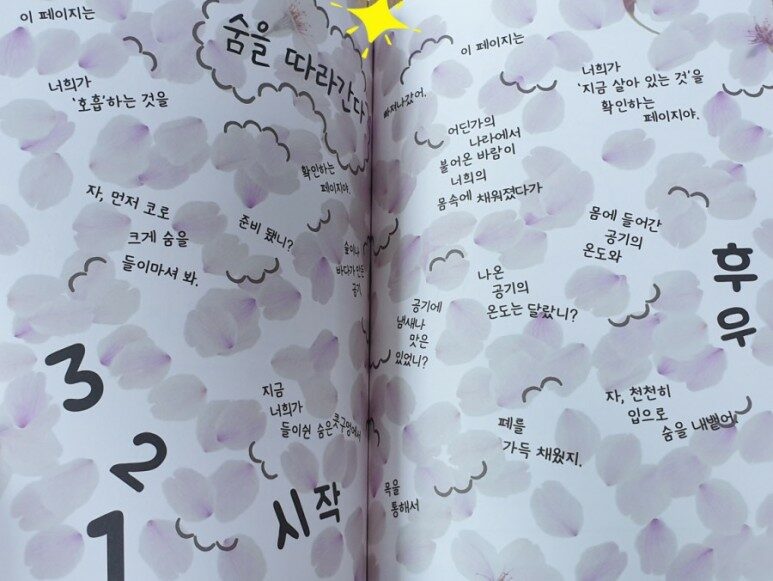 숨을 따라간다
이 페이지는
너희가
'호흡'하는 것을
확인하는
페이지야.
준비 됐니?
자, 먼저 코로
크게 숨을
들이마셔 봐.
3
2
1
시작
지금
너희가
들이쉰 숨은 콧구멍에서
목을
통해서
폐를
가득 채웠지.
자, 천천히
입으로
숨을 내뱉어.
후
우
몸에 들어간
공기의
온도와
나온
공기의
온도는 달랐니?
공기에
냄새나
맛은
있었니?
숲이나
바다가 만든
공기
어딘가의
나라에서
불어온 바람이
너희의
몸속에 채워졌다가
빠져나갔어.
이 페이지는
너희가
'지금 살아 있는 것'을
확인하는
페이지야.